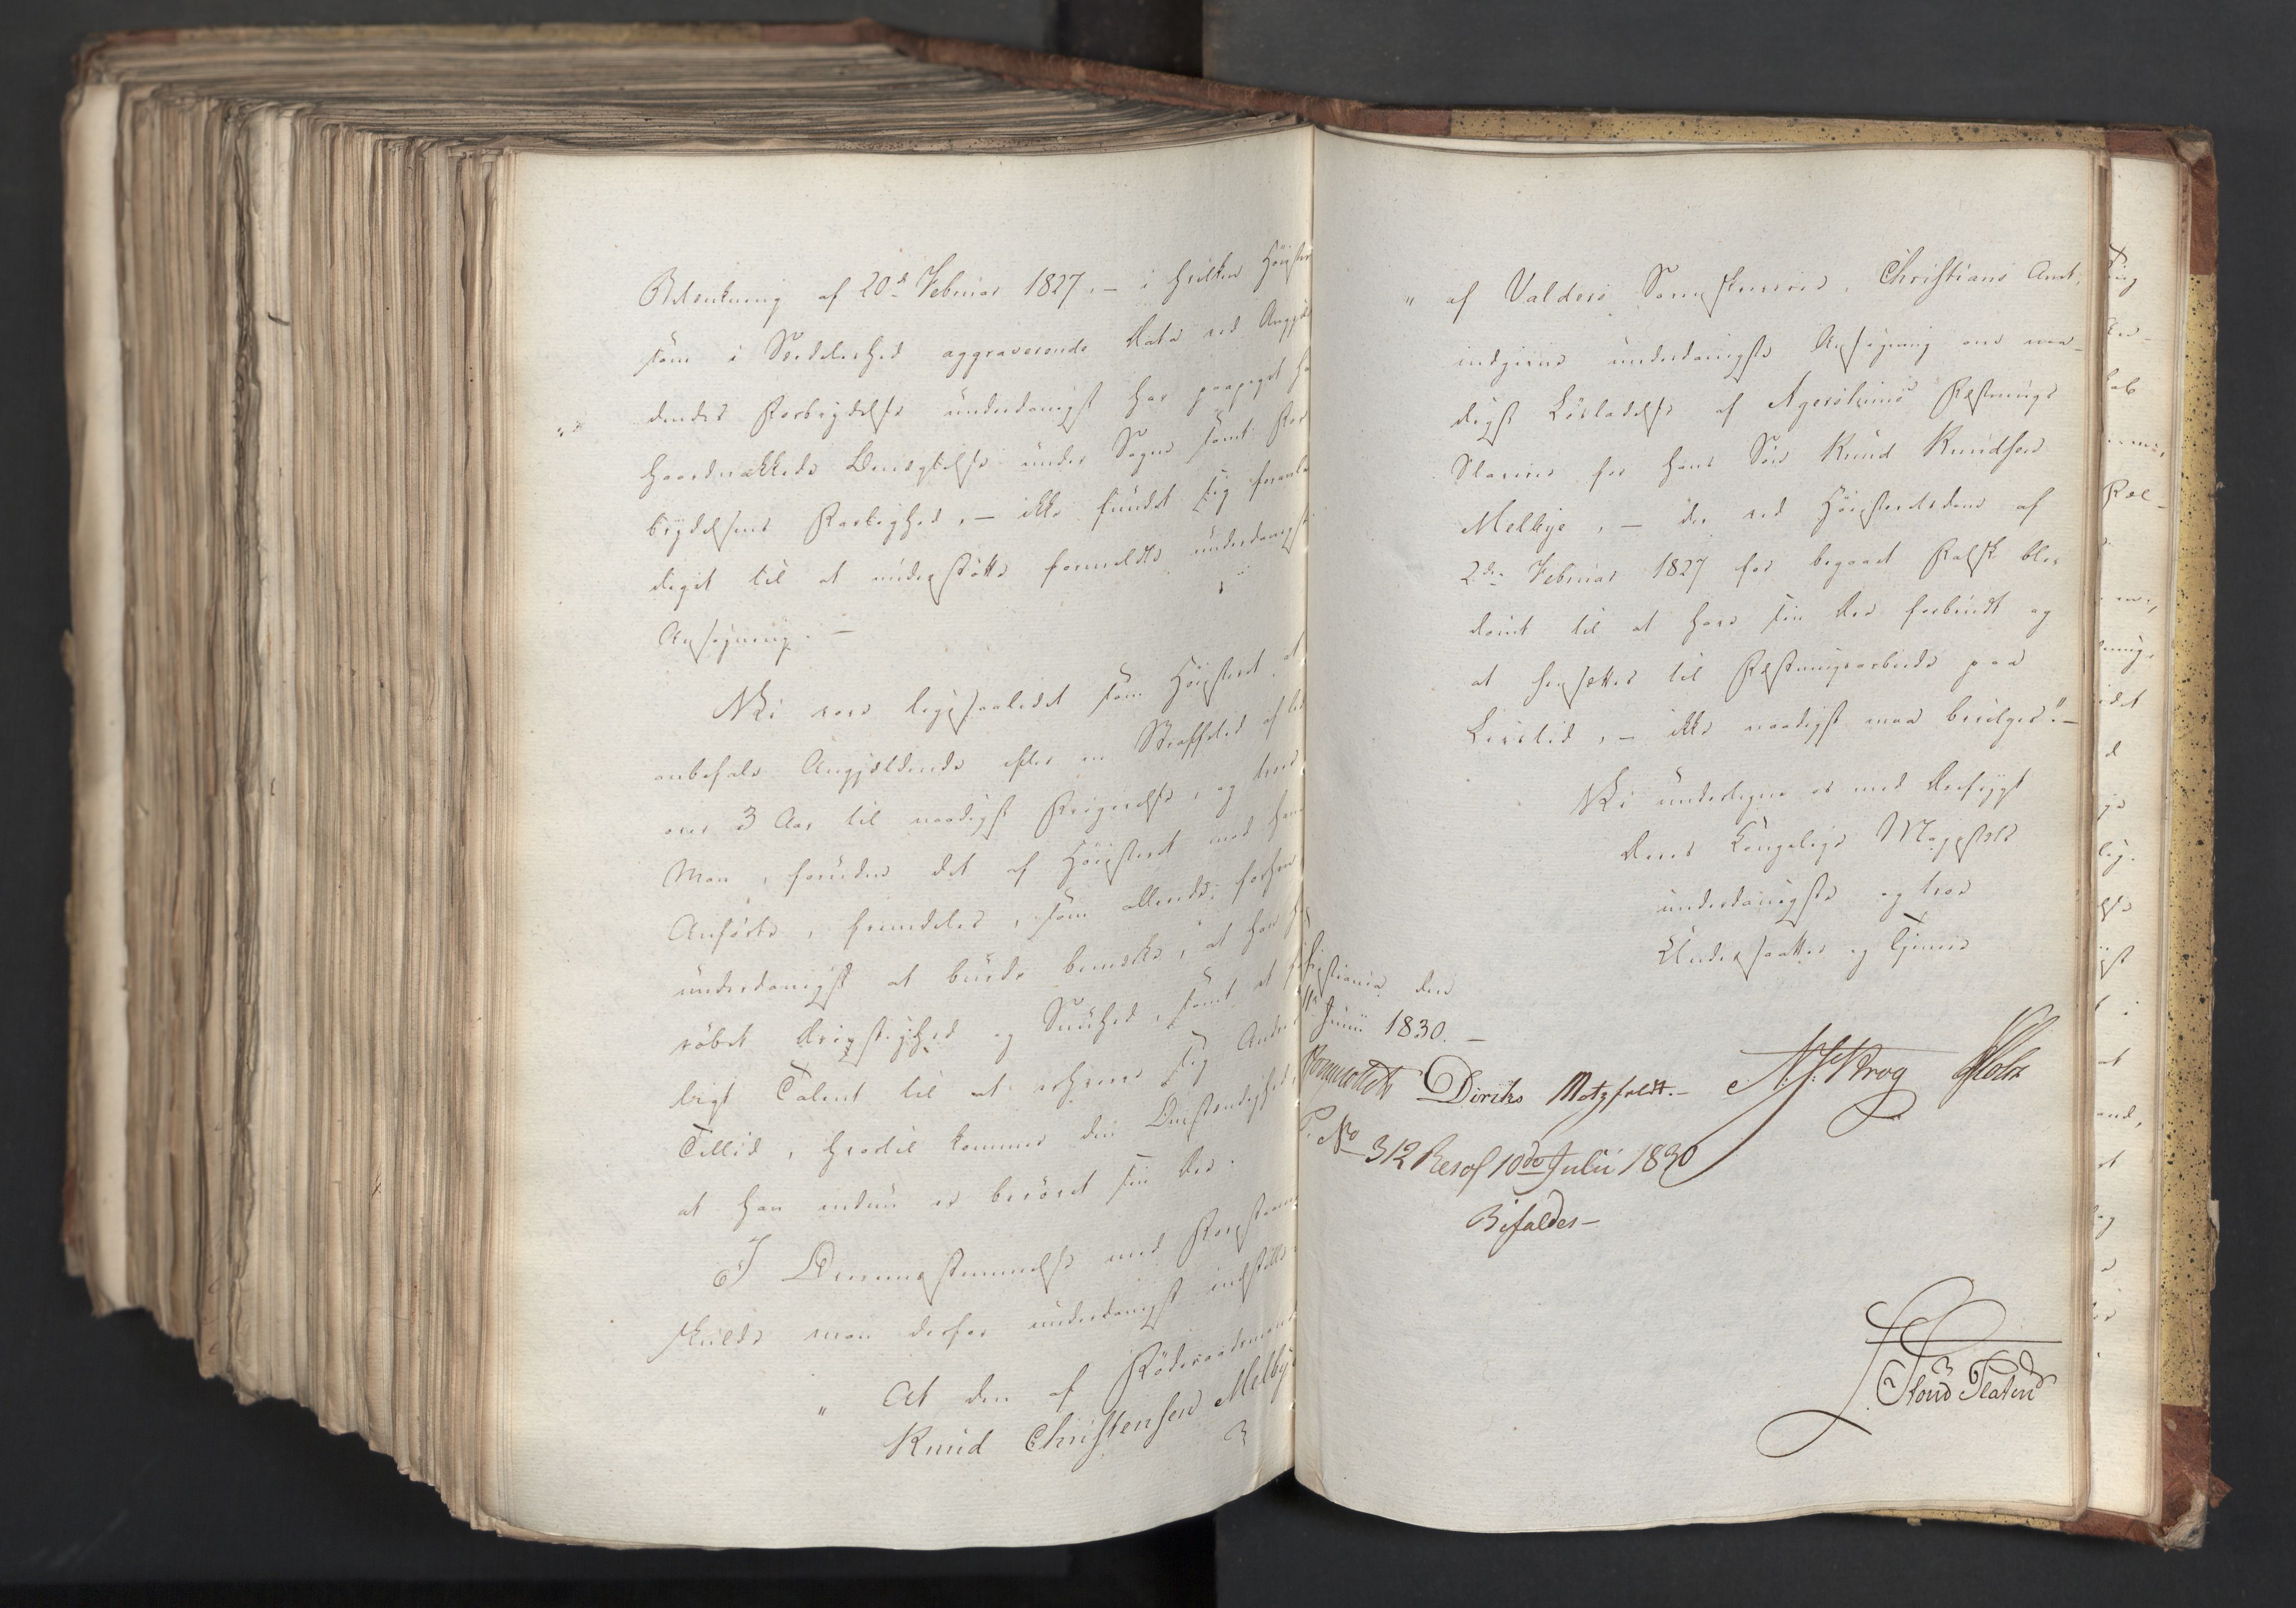 Betænkning af 20de Februar 1827, – i hvilken Høieste
som i Særdeleshed aggraverende Data ved Angjæl
dendes Forbrydelse underdanigst har paapeget hans
haardnakkede Benægtelse under Sagen samt For
brydelsens Farlighed, – ikke fundet sig foranle
diget til at understøtte formeldte underdanigste
Ansøgning. –
Vi vove ligesaalidet som Høiesteret, at
anbefale Angjældende efter en Straffetid af lidt
over 3 Aar til naadigst Frigivelse, og troer
Man, foruden det af Høiesteret mod ham
Anførte, fremdeles, som allerede forhen
underdanigst at burde bemærke, at han har
røbet Dristighed og Snuhed, samt et
ligt Talent til at erhverve sig Andres
Tillid, hvortil kommer den Omstændighed,
at han endnu er berøvet sin Ære.
I Overeensstemmelse med Forestaaende
skulde man derfor underdanigst indstille:
" At den af Føderaadsmand
Knud Christensen Melbye
" af Valders Sorenskriverie, Christians Amt,
indgivne underdanigste Ansøgning om naa-
digst Løsladelse af Agershuus Fæstnings
Slaverie for hans Søn Knud Knudsen
Melbye, – der ved Høiesteretsdom af
2den Februar 1827 for begaaet Falsk blev
dømt til at have sin Ære forbrudt og
at hensættes til Fæstningsarbeide paa
Livstid, – ikke naadigst maa bevilges". –
Vi undertegne os med Ærefrygt
Deres Kongelige Majestæts
underdanigste og troe
Undersaatter og Tjenere
Christiania den
Junii 1830. –
Sommerfeldt Diriks Motzfeldt. – N: J: Krog Holst
P. No 312 Resol 10de Julii 1830
Bifaldes –
Frond Platen